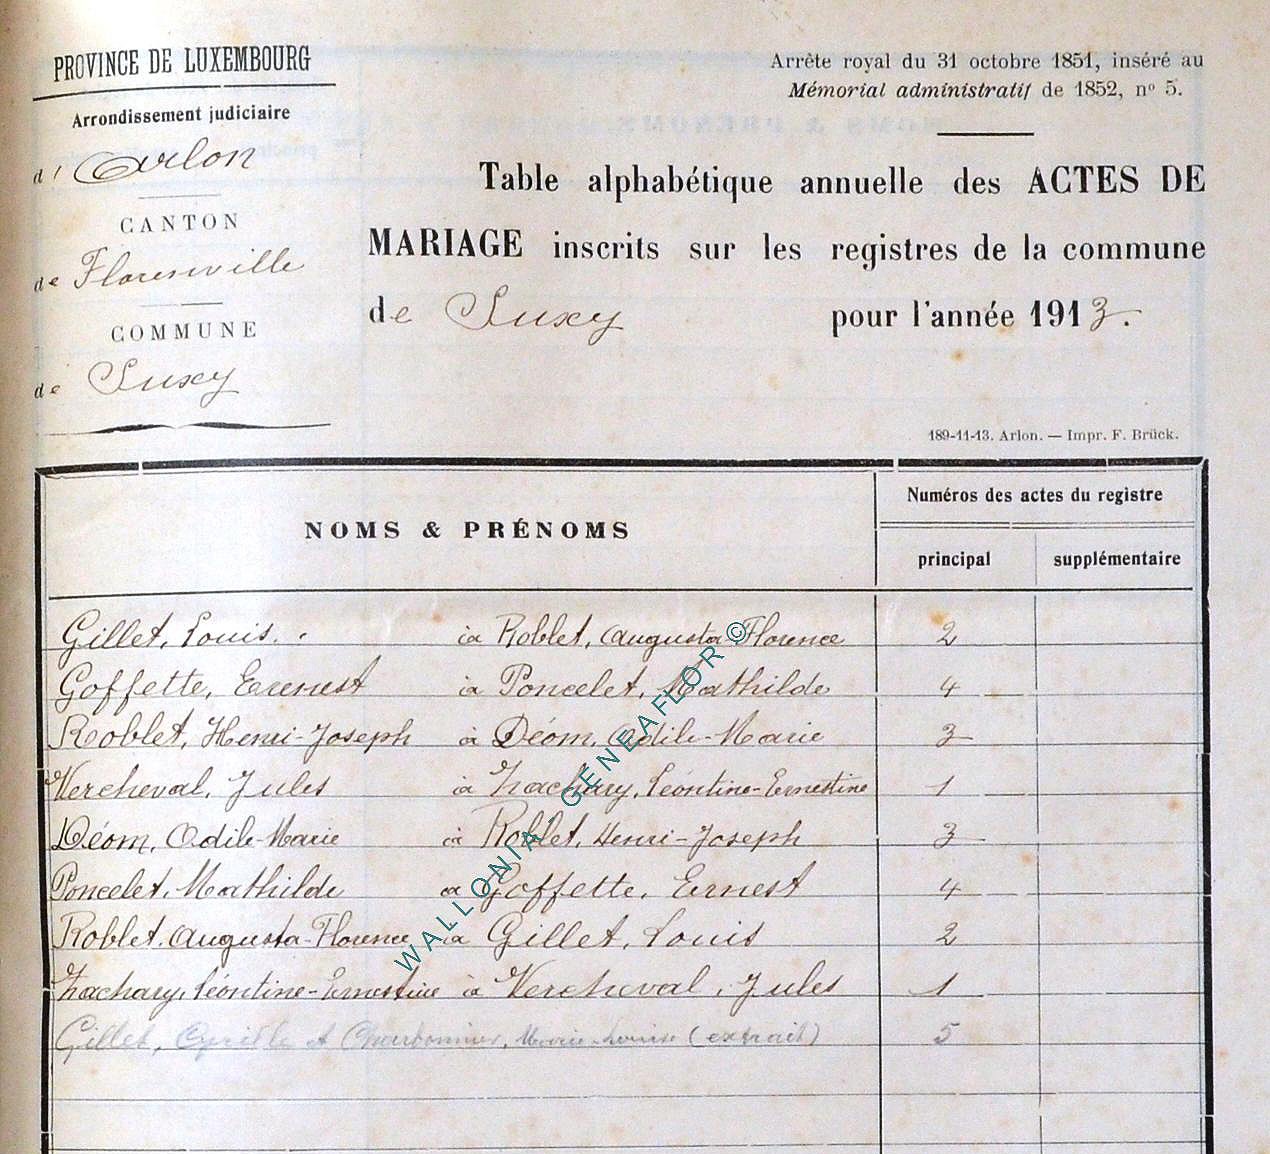 PROVINCE DE LUXEMBOURG
Arrondissement judiciaire
d' Arlon
CANTON
de Florenville
COMMUNE
de Suxy
Arrête royal du 31 octobre 1851, inséré au
Mémorial administratif de 1852, nº 5.
Table alphabétique annuelle des ACTES DE
MARIAGE inscrits sur les registres de la commune
de Suxy pour l'année 1913.
189-11-13. Arlon. — Impr. F. Brück.
NOMS & PRÉNOMS
Numéros des actes du registre
principal supplémentaire
Gillet, Louis. à Roblet, Augusta-Florence 2
Goffette, Ernest à Poncelet, Mathilde 4
Roblet, Henri-Joseph à Déom, Odile-Marie 3
Vercheval, Jules à Zachary, Léontine-Ernestine 1
Déom, Odile-Marie à Roblet, Henri-Joseph 3
Poncelet, Mathilde à Goffette, Ernest 4
Roblet, Augusta-Florence à Gillet, Louis 2
Zachary, Léontine-Ernestine à Vercheval, Jules 1
Gillet, Cyrille et Charbonnier, Marie-Louise (extrait) 5
WALLONIA-GENEAFLOR ©